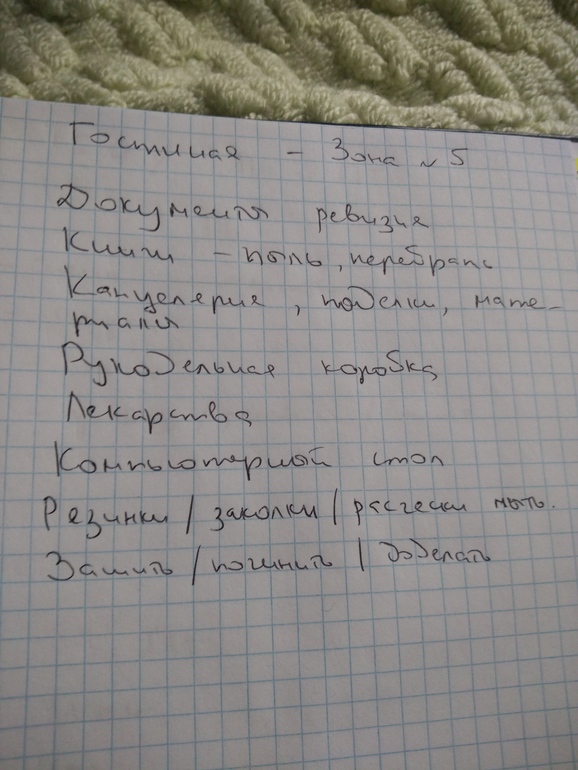 Гостиная - Зона № 5
Документы ревизия
Книги - пыль, перебрать
Канцелерия, поделки, мате-
риалы
Рукодельная коробка
Лекарства
Компьютерный стол
Резинки / заколки / расчески мыть.
Зашить / починить / доделать